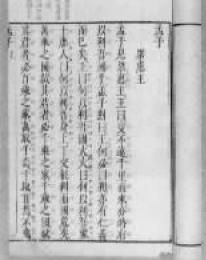 孟子
梁惠王
孟子見梁惠王王曰叟不遠千里而來亦將有
以利吾國乎孟子對曰王何必曰利亦有仁義
而已矣王曰何以利吾國大夫曰何以利吾家士
庶人曰何以利吾身上下交征利而國危矣
萬乘之國弒其君者必千乘之家千乘之國弒
其君者必百乘之家萬取千焉千取百焉不為